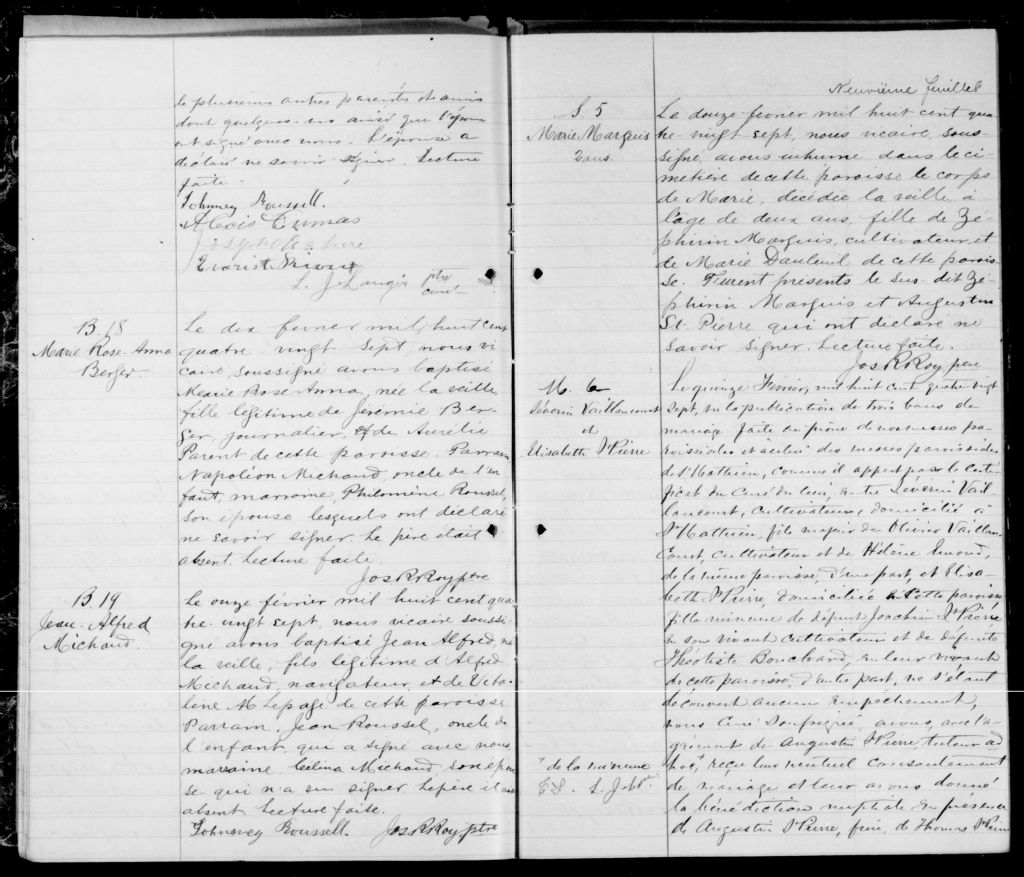 de plusieurs autres parents et amis
dont quelques-uns ainsi que l'époux
ont signé avec nous. L'épouse a
déclaré ne savoir signer. Lecture
faite.
Johnney Roussell.
Alexis Dumas
Joseph père
Evariste
L. J. Langis ptre
curé
B. 18
Marie Rose-Anna
Berger
Le dix février mil huit cent
quatre vingt sept, nous vi
caire soussigné avons baptisé
Marie Rose Anna, née la veille
fille légitime de Jérémie Ber-
ger, journalier, et de Aurélie
Parent de cette paroisse. Parrain
Napoléon Michaud, oncle de l'en
fant, marraine, Philomène Roussel,
son épouse lesquels ont déclaré
ne savoir signer. Le père était
absent. Lecture faite.
Jos R Roy ptre
B. 19
Jean-Alfred
Michaud.
Le onze février mil huit cent qua
tre-vingt sept, nous vicaire soussi-
gné avons baptisé Jean Alfred, né
la veille, fils légitime d'Alfred
Michaud, navigateur, et de Vita-
line M. Lepage de cette paroisse
Parrain, Jean Roussel, oncle de
l'enfant, qui a signé avec nous,
marraine Celina Michaud, son épou
se qui n'a su signer. Le père était
absent. Lecture faite.
Johnney Roussell. Jos R Roy ptre
Neuvième feuillet
S. 5
Marie Marquis
2 ans.
Le douze février mil huit cent qua
tre vingt sept, nous vicaire, sous-
signé, avons inhumé dans le ci-
metière de cette paroisse le corps
de Marie, décédée la veille, à
l'âge de deux ans, fille de Zé-
phirin Marquis, cultivateur, et
de Marie Dauteuil de cette parois
se. Furent présents le sus-dit Zé-
phirin Marquis et Augustin
St-Pierre qui ont déclaré ne
savoir signer. Lecture faite.
Jos R Roy ptre
M. 6
Séverin Vaillancourt
et
Elisabeth St Pierre
Le quinze Février, mil huit cent quatre vingt
sept, vu la publication de trois bans de
mariage faite au prône de nos messes pa-
roissiales et à celui des messes paroissiales
de St Mathieu, comme il appert par le certi-
ficat du Curé du lieu, entre Séverin Vail-
lancourt, Cultivateur, domicilié à
St Mathieu, fils majeur de Olivier Vaillan
court, Cultivateur et de Hélène Emond,
de la même paroisse, d'une part, et Elisa-
beth St Pierre, domiciliée en cette paroisse
fille mineure de défunt Joachim St Pierre
en son vivant cultivateur et de défunte
Théotiste Bouchard, en leur vivant
de cette paroisse, d'autre part, ne s'étant
découvert aucun empêchement,
nous Curé Soussigné avons, avec l'a-
grément de Augustin St Pierre, tuteur ad
hoc, reçu leur mutuel consentement
de mariage et leur avons donné
la bénédiction nuptiale en présence
de Augustin St Pierre, frère, de Thomas St Pierre
de la mineure